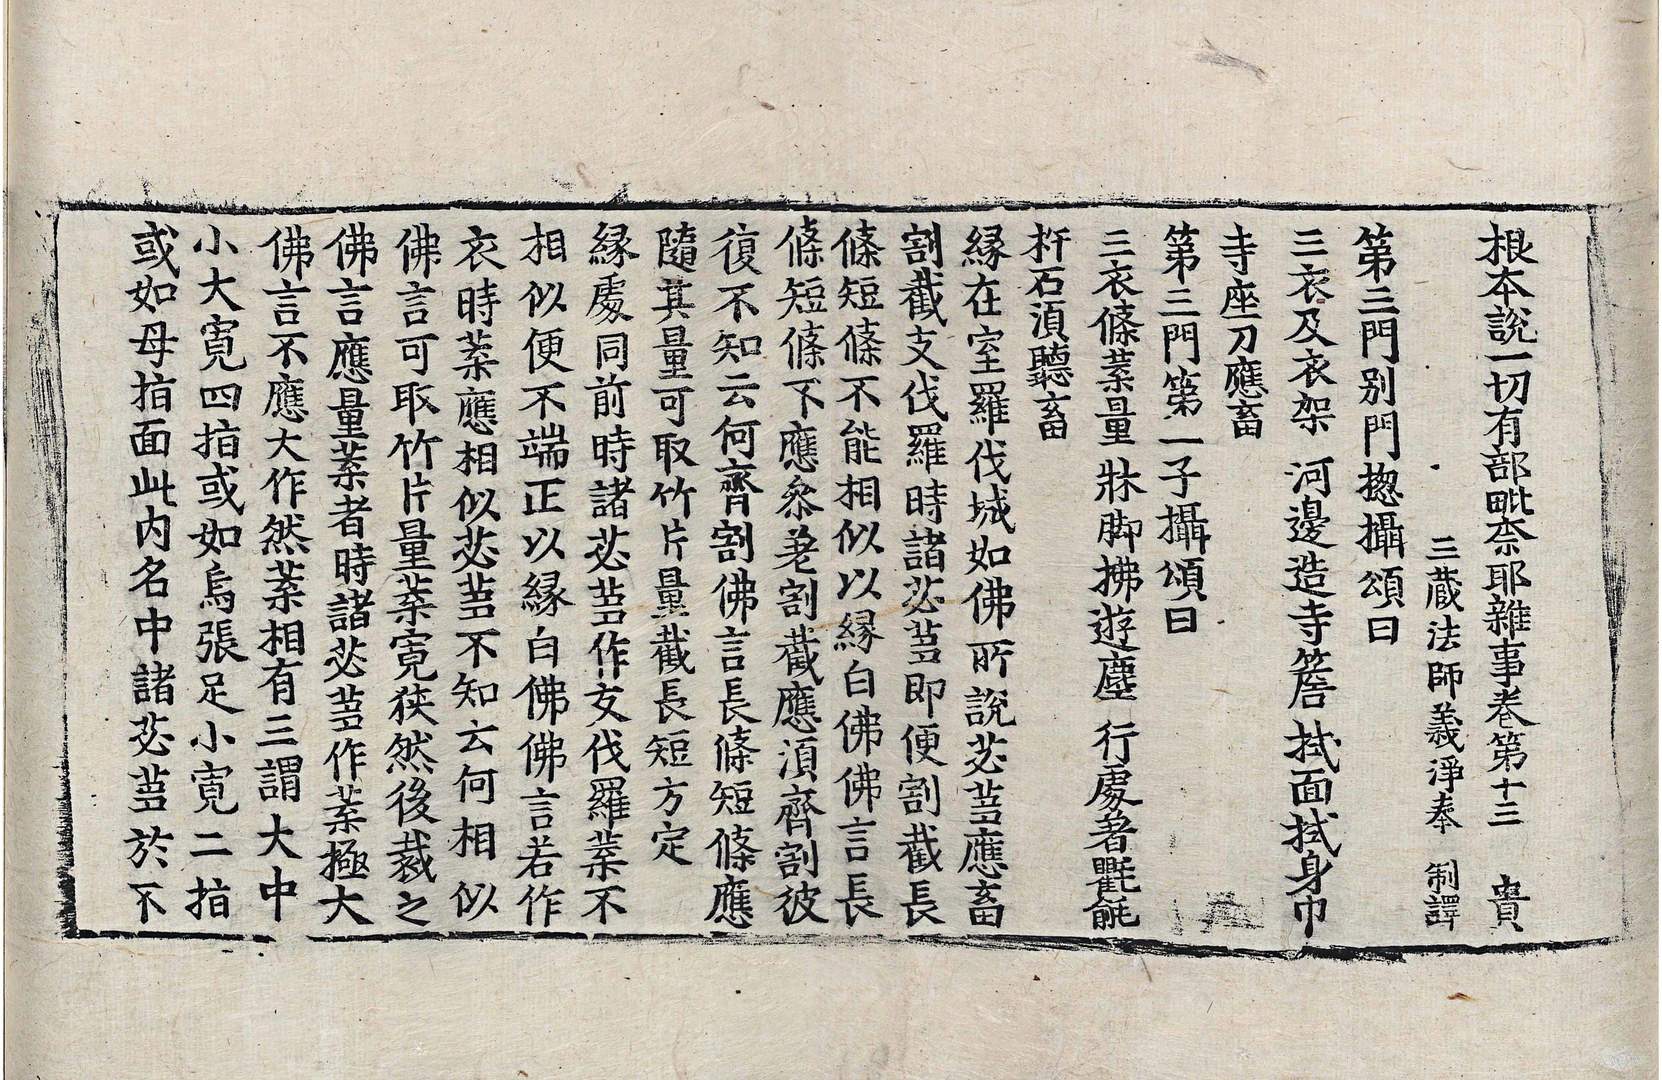 根本說一切有部毗奈耶雜事卷第十三 貴
三藏法師義淨奉 制譯
第三門別門揔攝頌曰
三衣及衣架 河邊造寺簷 拭面拭身巾
寺座刀應畜
第三門第一子攝頌曰
三衣條葉量 牀脚拂遊塵 行處著氍毹
杵石湏聽畜
緣在室羅伐城如佛所說苾芻應畜
割截支伐羅時諸苾芻即便割截長
條短條不能相似以緣白佛佛言長
條短條不應叅差割截應湏齊割彼
復不知云何齊割佛言長條短條應
隨其量可取竹片量截長短方定
緣處同前時諸苾芻作支伐羅葉不
相似便不端正以緣白佛佛言若作
衣時葉應相似苾芻不知云何相似
佛言可取竹片量葉寬狹然後裁之
佛言應量葉者時諸苾芻作葉極大
佛言不應大作然葉相有三謂大中
小大寬四指或如烏張足小寬二指
或如母指面此内名中諸苾芻於不